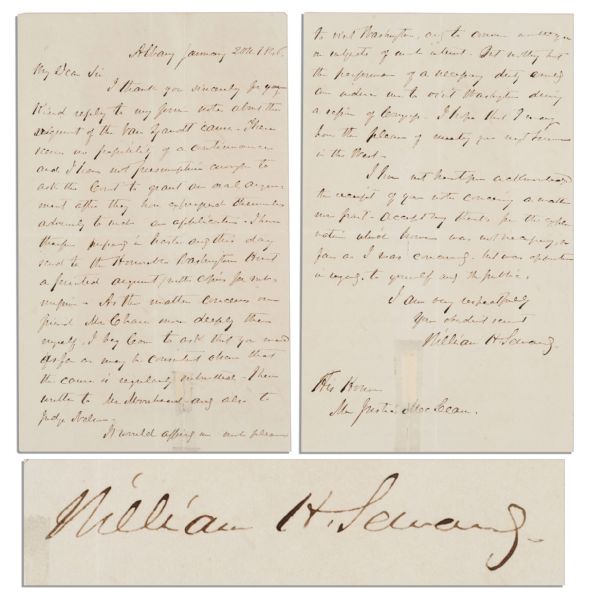 Albany January 20th 1846.
My Dear Sir
I thank you sincerely for your
kind reply to my former note about the
argument of the Van Zandt cause. There
seems no possibility of a continuance
and I have not presumption enough to
ask the Court to grant an oral argu-
ment after they have expressed themselves
adversely to such an application. I have
therefore prepared in haste and this day
send to the Honorable Washington Hunt
a printed argument with copies for sub-
mission. As the matter concerns our
friend Mr Chase more deeply than
myself, I beg leave to ask that you would
so far as may be consistent
the cause is regularly submitted. I have
written to Mr Morehead and also to
Judge Nelson.
It would afford me much pleasure
to visit Washington, and to
on subjects of such interest. But nothing but
the performance of a necessary duty could
induce me to visit Washington during
a session of Congress. I hope that I may
have the pleasure of meeting you next Summer
in the West.
I have not before acknowledged
the receipt of your note concerning a
accept my thanks for the
which however was not necessary so
far as I was concerned, but was
to yourself and the public.
I am very respectfully
Your obedient servant
William H. Seward.
His Honor
Mr Justice MacLean.
William H. Seward.